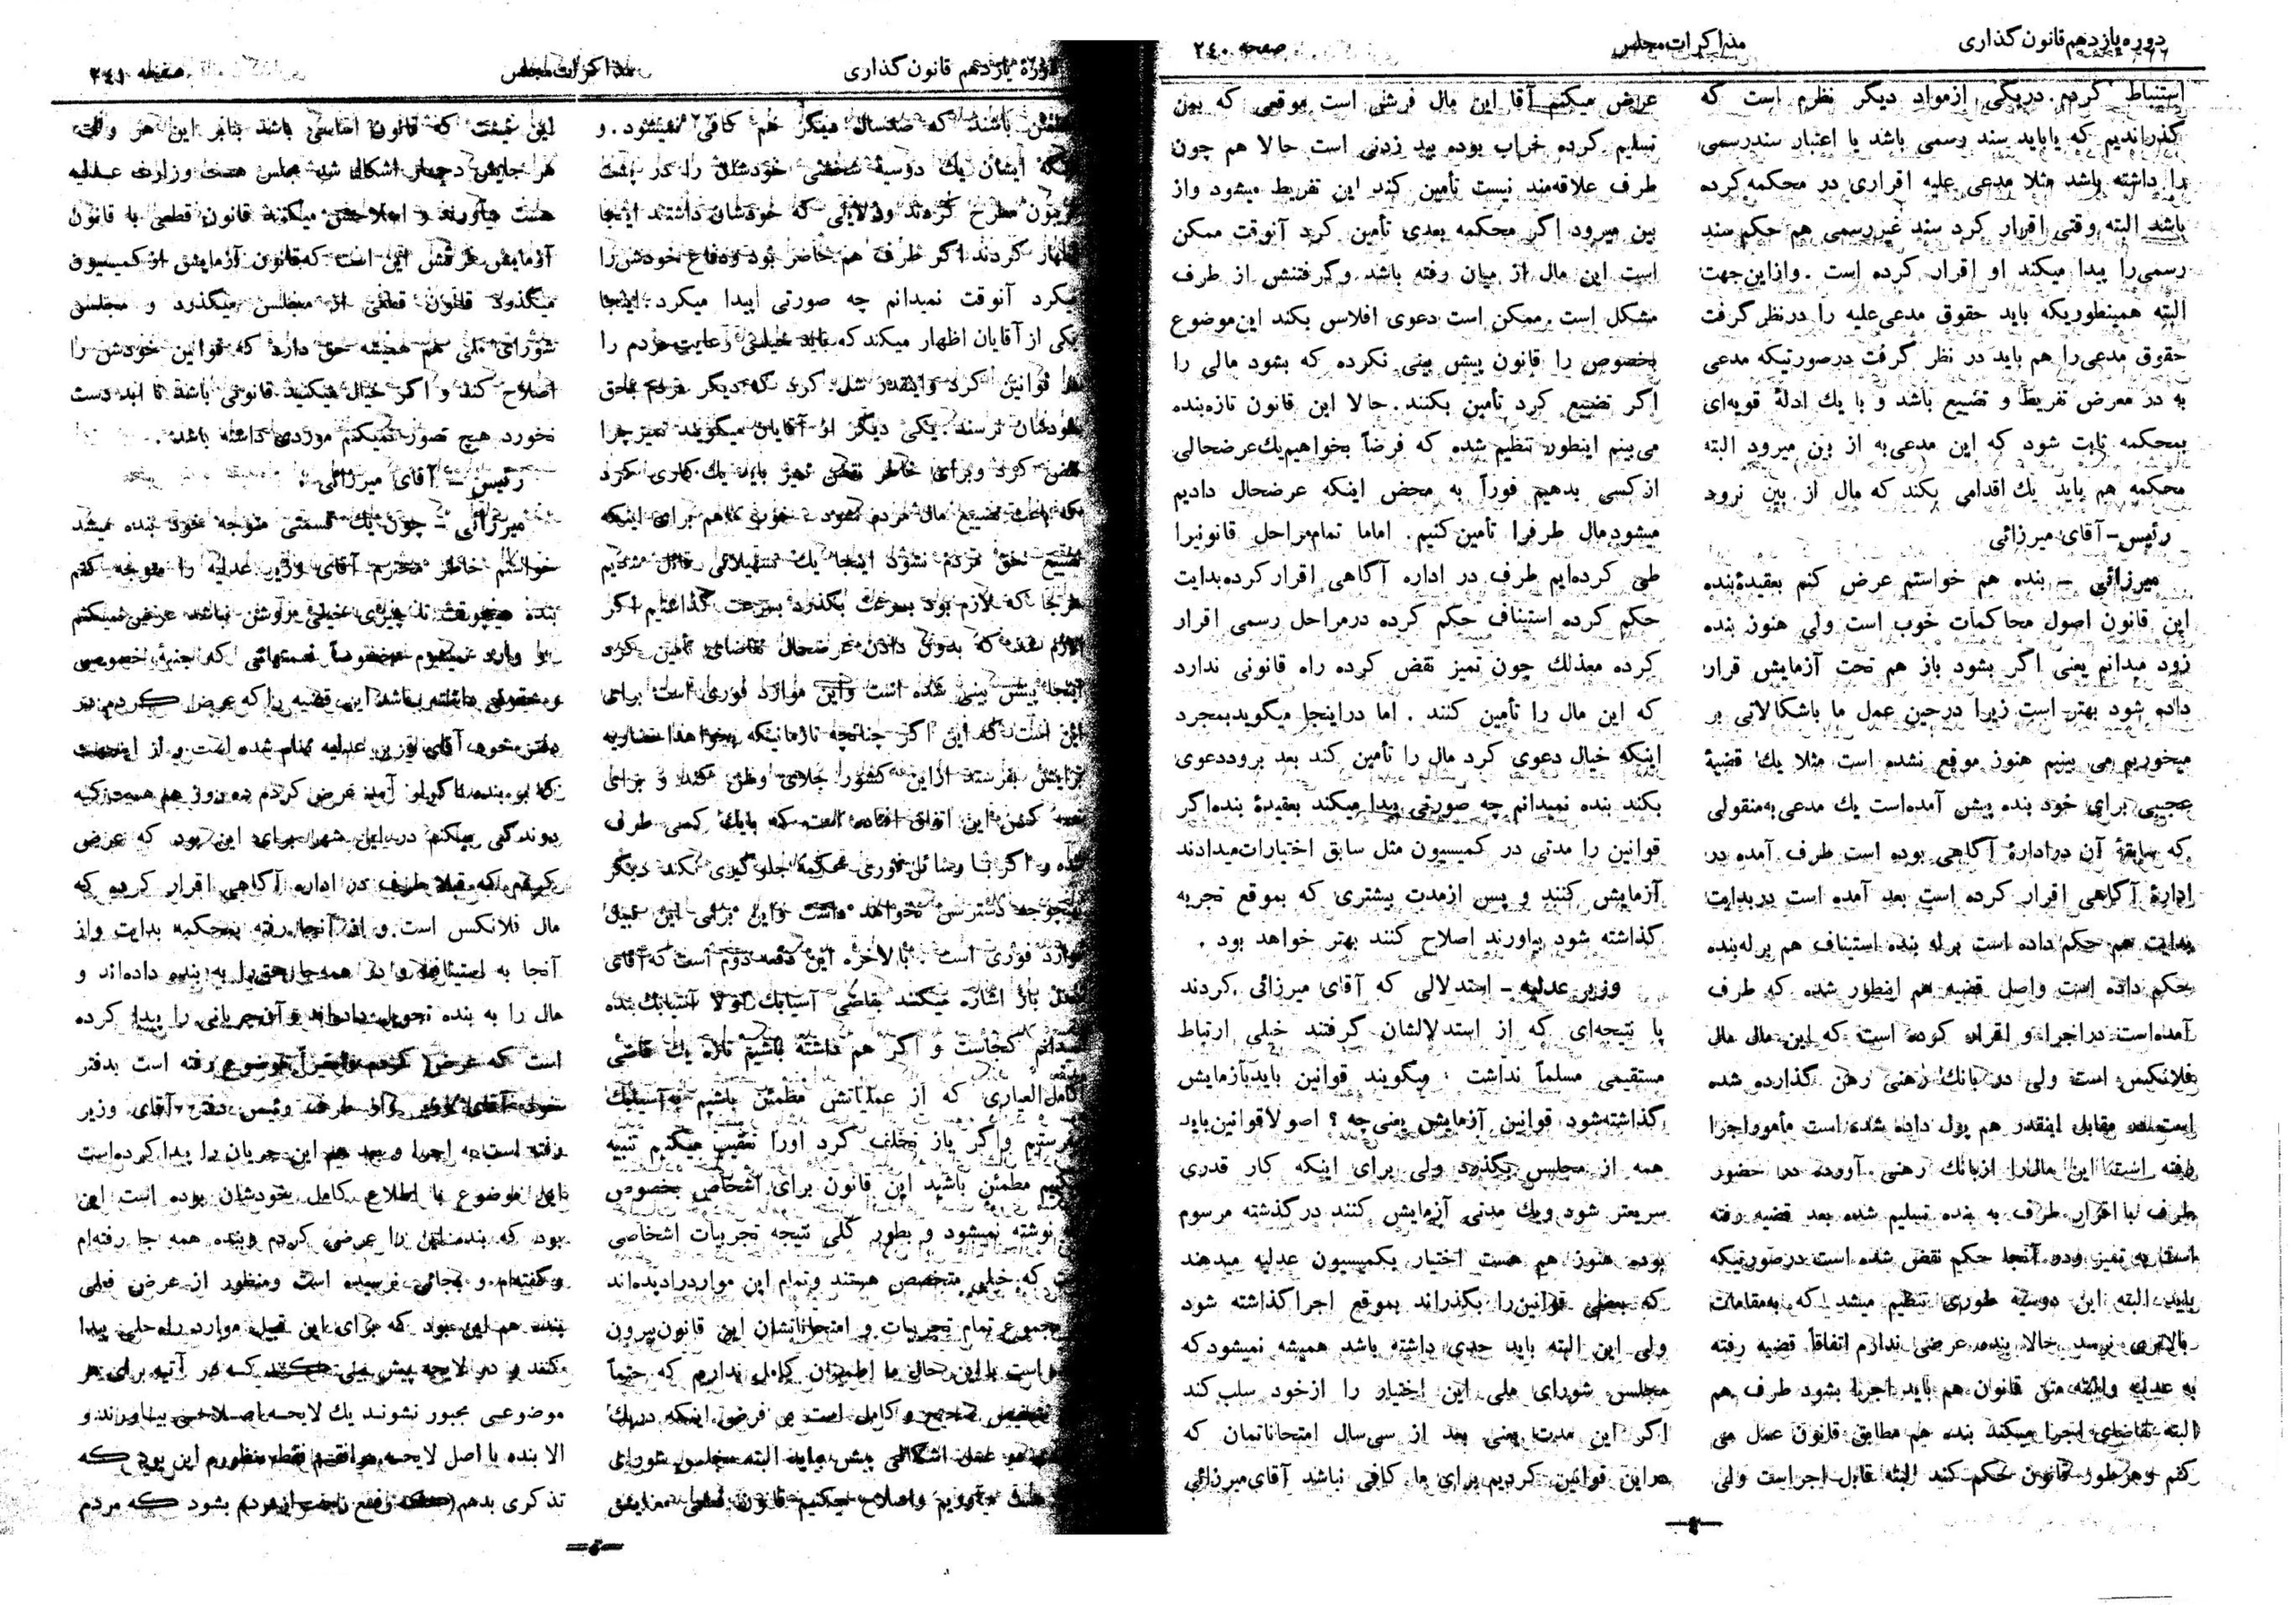 دوره یازدهم قانون‌گذاری
مذاکرات مجلس
صفحه ۲۴۰
استنباط کردم. در یکی از مواد دیگر نظرم است که
گذراندیم که یا باید سند رسمی باشد یا اعتبار سند رسمی
را داشته باشد مثلا مدعی علیه اقراری در محکمه کرده
باشد البته وقتی اقرار کرد سند غیر رسمی هم حکم سند
رسمی را پیدا میکند او اقرار کرده است . و از این جهت
البته همینطوریکه باید حقوق مدعی‌علیه را در نظر گرفت
حقوق مدعی را هم باید در نظر گرفت در صورتیکه مدعی
به در معرض تفریط و تضییع باشد و با یك ادلهٔ قویه‌ای
بمحکمه ثابت شود که این مدعی‌به از بین میرود البته
محکمه هم باید یك اقدامی بکند که مال از بین نرود
رئیس - آقای میرزائی
میرزائی - بنده هم خواستم عرض کنم بعقیدهٔ بنده
این قانون اصول محاکمات خوب است ولی هنوز بنده
زود میدانم یعنی اگر بشود باز هم تحت آزمایش قرار
داده شود بهتر است زیرا در حین عمل ما باشکالاتی بر
میخوریم می بینیم هنوز موقع نشده است مثلا یك قضیهٔ
عجیبی برای خود بنده پیش آمده‌است یك مدعی‌به منقولی
که سابقهٔ آن در ادارهٔ آگاهی بوده است طرف آمده در
ادارهٔ آگاهی اقرار کرده است بعد آمده است در بدایت
بدایت هم حکم داده است بر له بنده استیناف هم بر له بنده
حکم داده است و اصل قضیه هم اینطور شده که طرف
آمده‌است در اجرا و اقرار کرده است که این مال مال
فلانکس است ولی در بانك رهنی رهن گذارده شده
است در مقابل اینقدر هم پول داده شده است مأمور اجرا
رفته است این مال را از بانك رهنی آورده در حضور
طرف با اقرار طرف به بنده تسلیم شده بعد قضیه رفته
است به تمیز و در آنجا حکم نقض شده است در صورتیکه
باید البته این دوسیه طوری تنظیم میشد که به مقامات
بالاتری نرسد حالا بنده عرضی ندارم اتفاقاً قضیه رفته
به عدلیه و البته متن قانون هم باید اجرا بشود طرف هم
البته تقاضای اجرا میکند بنده هم مطابق قانون عمل می
کنم و هر طور قانون حکم کند البته قابل اجرا است ولی
عرض میکنم آقا این مال فرشی است موقعی که بمن
تسلیم کرده خراب بوده بید زدنی است حالا هم چون
طرف علاقه‌مند نیست تأمین کند این تفریط میشود و از
بین میرود اگر محکمه بعدی تأمین کرد آنوقت ممکن
است این مال از میان رفته باشد و گرفتنش از طرف
مشکل است . ممکن است دعوی افلاس بکند این موضوع
بخصوص را قانون پیش بینی نکرده که بشود مالی را
اگر تضییع کرد تأمین بکنند . حالا این قانون تازه بنده
می‌بینم اینطور تنظیم شده که فرضاً بخواهیم یك عرضحالی
از کسی بدهیم فوراً به محض اینکه عرضحال دادیم
میشود مال طرف را تأمین کنیم . اما ما تمام مراحل قانونی را
طی کرده‌ایم طرف در اداره آگاهی اقرار کرده بدایت
حکم کرده استیناف حکم کرده در مراحل رسمی اقرار
کرده معذلك چون تمیز نقض کرده راه قانونی ندارد
که این مال را تأمین کنند . اما در اینجا میگوید بمجرد
اینکه خیال دعوی کرد مال را تأمین کند بعد برود دعوی
بکند بنده نمیدانم چه صورتی پیدا میکند بعقیدهٔ بنده اگر
قوانین را مدتی در کمیسیون مثل سابق اختیارات میدادند
آزمایش کنند و پس از مدت بیشتری که بموقع تجربه
گذاشته شود بیاورند اصلاح کنند بهتر خواهد بود .
وزیر عدلیه - استدلالی که آقای میرزائی کردند
با نتیجه‌ای که از استدلالشان گرفتند خیلی ارتباط
مستقیمی مسلماً نداشت . میگویند قوانین باید بآزمایش
گذاشته شود قوانین آزمایش یعنی چه ؟ اصولا قوانین باید
همه از مجلس بگذرد ولی برای اینکه کار قدری
سریعتر شود و یك مدتی آزمایش کنند در گذشته مرسوم
بوده هنوز هم هست اختیار بکمیسیون عدلیه میدهند
که بعضی قوانین را بگذراند بموقع اجرا گذاشته شود
ولی این البته باید حدی داشته باشد همیشه نمیشود که
مجلس شورای ملی این اختیار را از خود سلب کند
اگر این مدت یعنی بعد از سی سال امتحاناتمان که
در این قوانین کردیم برای ما کافی نباشد آقای میرزائی
—۴—
دوره یازدهم قانون‌گذاری
مذاکرات مجلس
صفحه ۲۴۱
باشند که صدسال دیگر هم کافی نمیشود . و
ایشان یك دوسیهٔ شخصی خودشان را در پشت
مطرح کردند و دلایلی که خودشان داشتند اینجا
کردند اگر طرف هم حاضر بود و دفاع خودش را
میکرد آنوقت نمیدانم چه صورتی پیدا میکرد . اینجا
یکی از آقایان اظهار میکند که باید خیلی رعایت مردم را
قوانین کرد و اینقدر شل کرد که دیگر مردم بحق
خودشان نرسند . یکی دیگر از آقایان میگویند تمیز چرا
نقض کرد و برای خاطر نقض تمیز باید یك کاری کرد
که باعث تضییع مال مردم نشود . خوب ما هم برای اینکه
تضییع حق مردم نشود اینجا یك تسهیلاتی قائل شدیم
هرجا که لازم بود بسرعت بگذرد بسرعت گذاشتیم اگر
لازم شد که بدون دادن عرضحال تقاضای تأمین کرد
اینجا پیش بینی شده است و این موارد فوری است برای
این است که این اگر چنانچه تا زمانیکه بخواهد اخطاریه
برایش بفرستد از این کشور جلای وطن کند و برای
این اتفاق افتاده است که با یك کسی طرف
شده و اگر با وسائل فوری محکمه جلوگیری نکند دیگر
بهیچوجه دسترسی نخواهد داشت و این برای این قبیل
موارد فوری است . بالاخره این دفعه دوم است که آقای
باز اشاره میکنند بقاضی آسیابك اولا آسیابك بنده
نمیدانم کجاست و اگر هم داشته باشیم تازه یك قاضی
کامل‌العیاری که از عملیاتش مطمئن باشیم به آسیابك
میفرستیم و اگر باز تخلف کرد او را تعقیب میکنیم تنبیه
میکنیم مطمئن باشید این قانون برای اشخاص بخصوص
نوشته نمیشود و بطور کلی نتیجه تجربیات اشخاصی
که خیلی متخصص هستند و تمام این موارد را دیده‌اند
مجموع تمام تجربیات و امتحاناتشان این قانون بیرون
است با این حال ما اطمینان کامل نداریم که حتماً
صحیح و کامل است بر فرض اینکه در یك
عمل اشکالی پیش بیاید البته مجلس شورای
هست میآوریم و اصلاح میکنیم قانون قطعی معنایش
این نیست که قانون اساسی باشد بنابر این هر وقت
هر جایش دچار اشکال شد مجلس هست وزارت عدلیه
هست میآورند و اصلاحش میکنند قانون قطعی با قانون
آزمایش فرقش این است که قانون آزمایش از کمیسیون
میگذرد قانون قطعی از مجلس میگذرد و مجلس
شورای ملی هم همیشه حق دارد که قوانین خودش را
اصلاح کند و اگر خیال میکنید قانونی باشد تا ابد دست
نخورد هیچ تصور نمیکنم موردی داشته باشد .
رئیس - آقای میرزائی .
میرزائی - چون یك قسمتی متوجه خود بنده میشد
خواستم خاطر محترم آقای وزیر عدلیه را متوجه کنم
بنده هیچوقت تا چیزی خیلی روشن نباشد عرض نمیکنم
و وارد نمیشوم مخصوصاً قسمتهائی که جنبهٔ خصوصی
داشته باشد این قضیه را که عرض کردم در
دفتر خود آقای وزیر عدلیه تمام شده است و از اینجهت
بنده ناگوار آمد عرض کردم ده روز هم هست که
دوندگی میکنم در این شهر برای این بود که عرض
کردم که قبلا طرف در اداره آگاهی اقرار کرده که
مال فلانکس است و از آنجا رفته بمحکمه بدایت و از
آنجا به استیناف و در همه جا حق را به بنده داده‌اند و
مال را به بنده تحویل داده‌اند و آن جریانی را پیدا کرده
است که عرض کردم و اخیراً موضوع رفته است بدفتر
خود آقای وزیر و از طرف رئیس دفتر آقای وزیر
رفته است به اجرا و بعد هم این جریان را پیدا کرده است
این موضوع با اطلاع کامل خودشان بوده است این
بود که بنده این را عرض کردم و بنده همه جا رفته‌ام
و گفته‌ام و بجائی نرسیده است و منظور از عرض فعلی
بنده هم این بود که برای این قبیل موارد راه حلی پیدا
کنند و در لایحه پیش بینی کنند که در آتیه برای هر
موضوعی مجبور نشوند یك لایحه اصلاحی بیاورند و
الا بنده با اصل لایحه موافقم فقط منظورم این بود که
تذکری بدهم بشود که مردم
—۵—